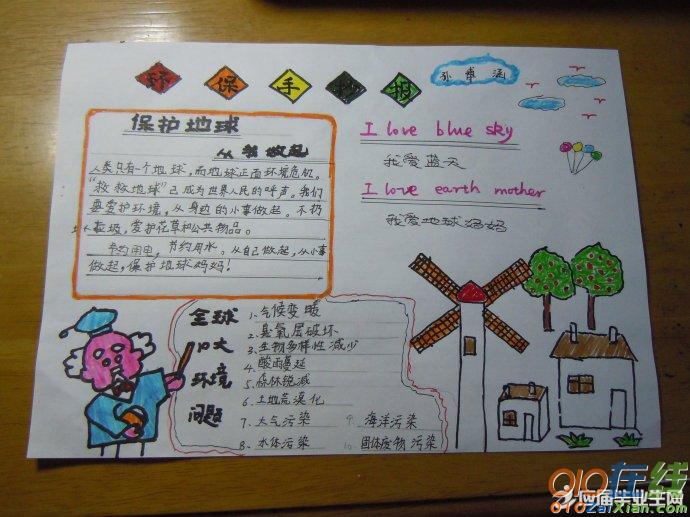 环保手抄报
孙卓涵
保护地球
从我做起
人类只有一个地球,而地球正面环境危机。
“救救地球”已成为世界人民的呼声。我们
要爱护环境,从身边的小事做起。不扔
垃圾,爱护花草和公共物品。
节约用电,节约用水。从自己做起,从小事
做起,保护地球妈妈!
I love blue sky
我爱蓝天
I love earth mother
我爱地球妈妈
全球
10大
环境
问题
1.气候变暖
2.臭氧层破坏
3.生物多样性减少
4.酸雨蔓延
5.森林锐减
6.土地荒漠化
7.大气污染
8.水体污染
9.海洋污染
10.固体废物污染
010在线
应届毕业生网
010ZaiXian.com